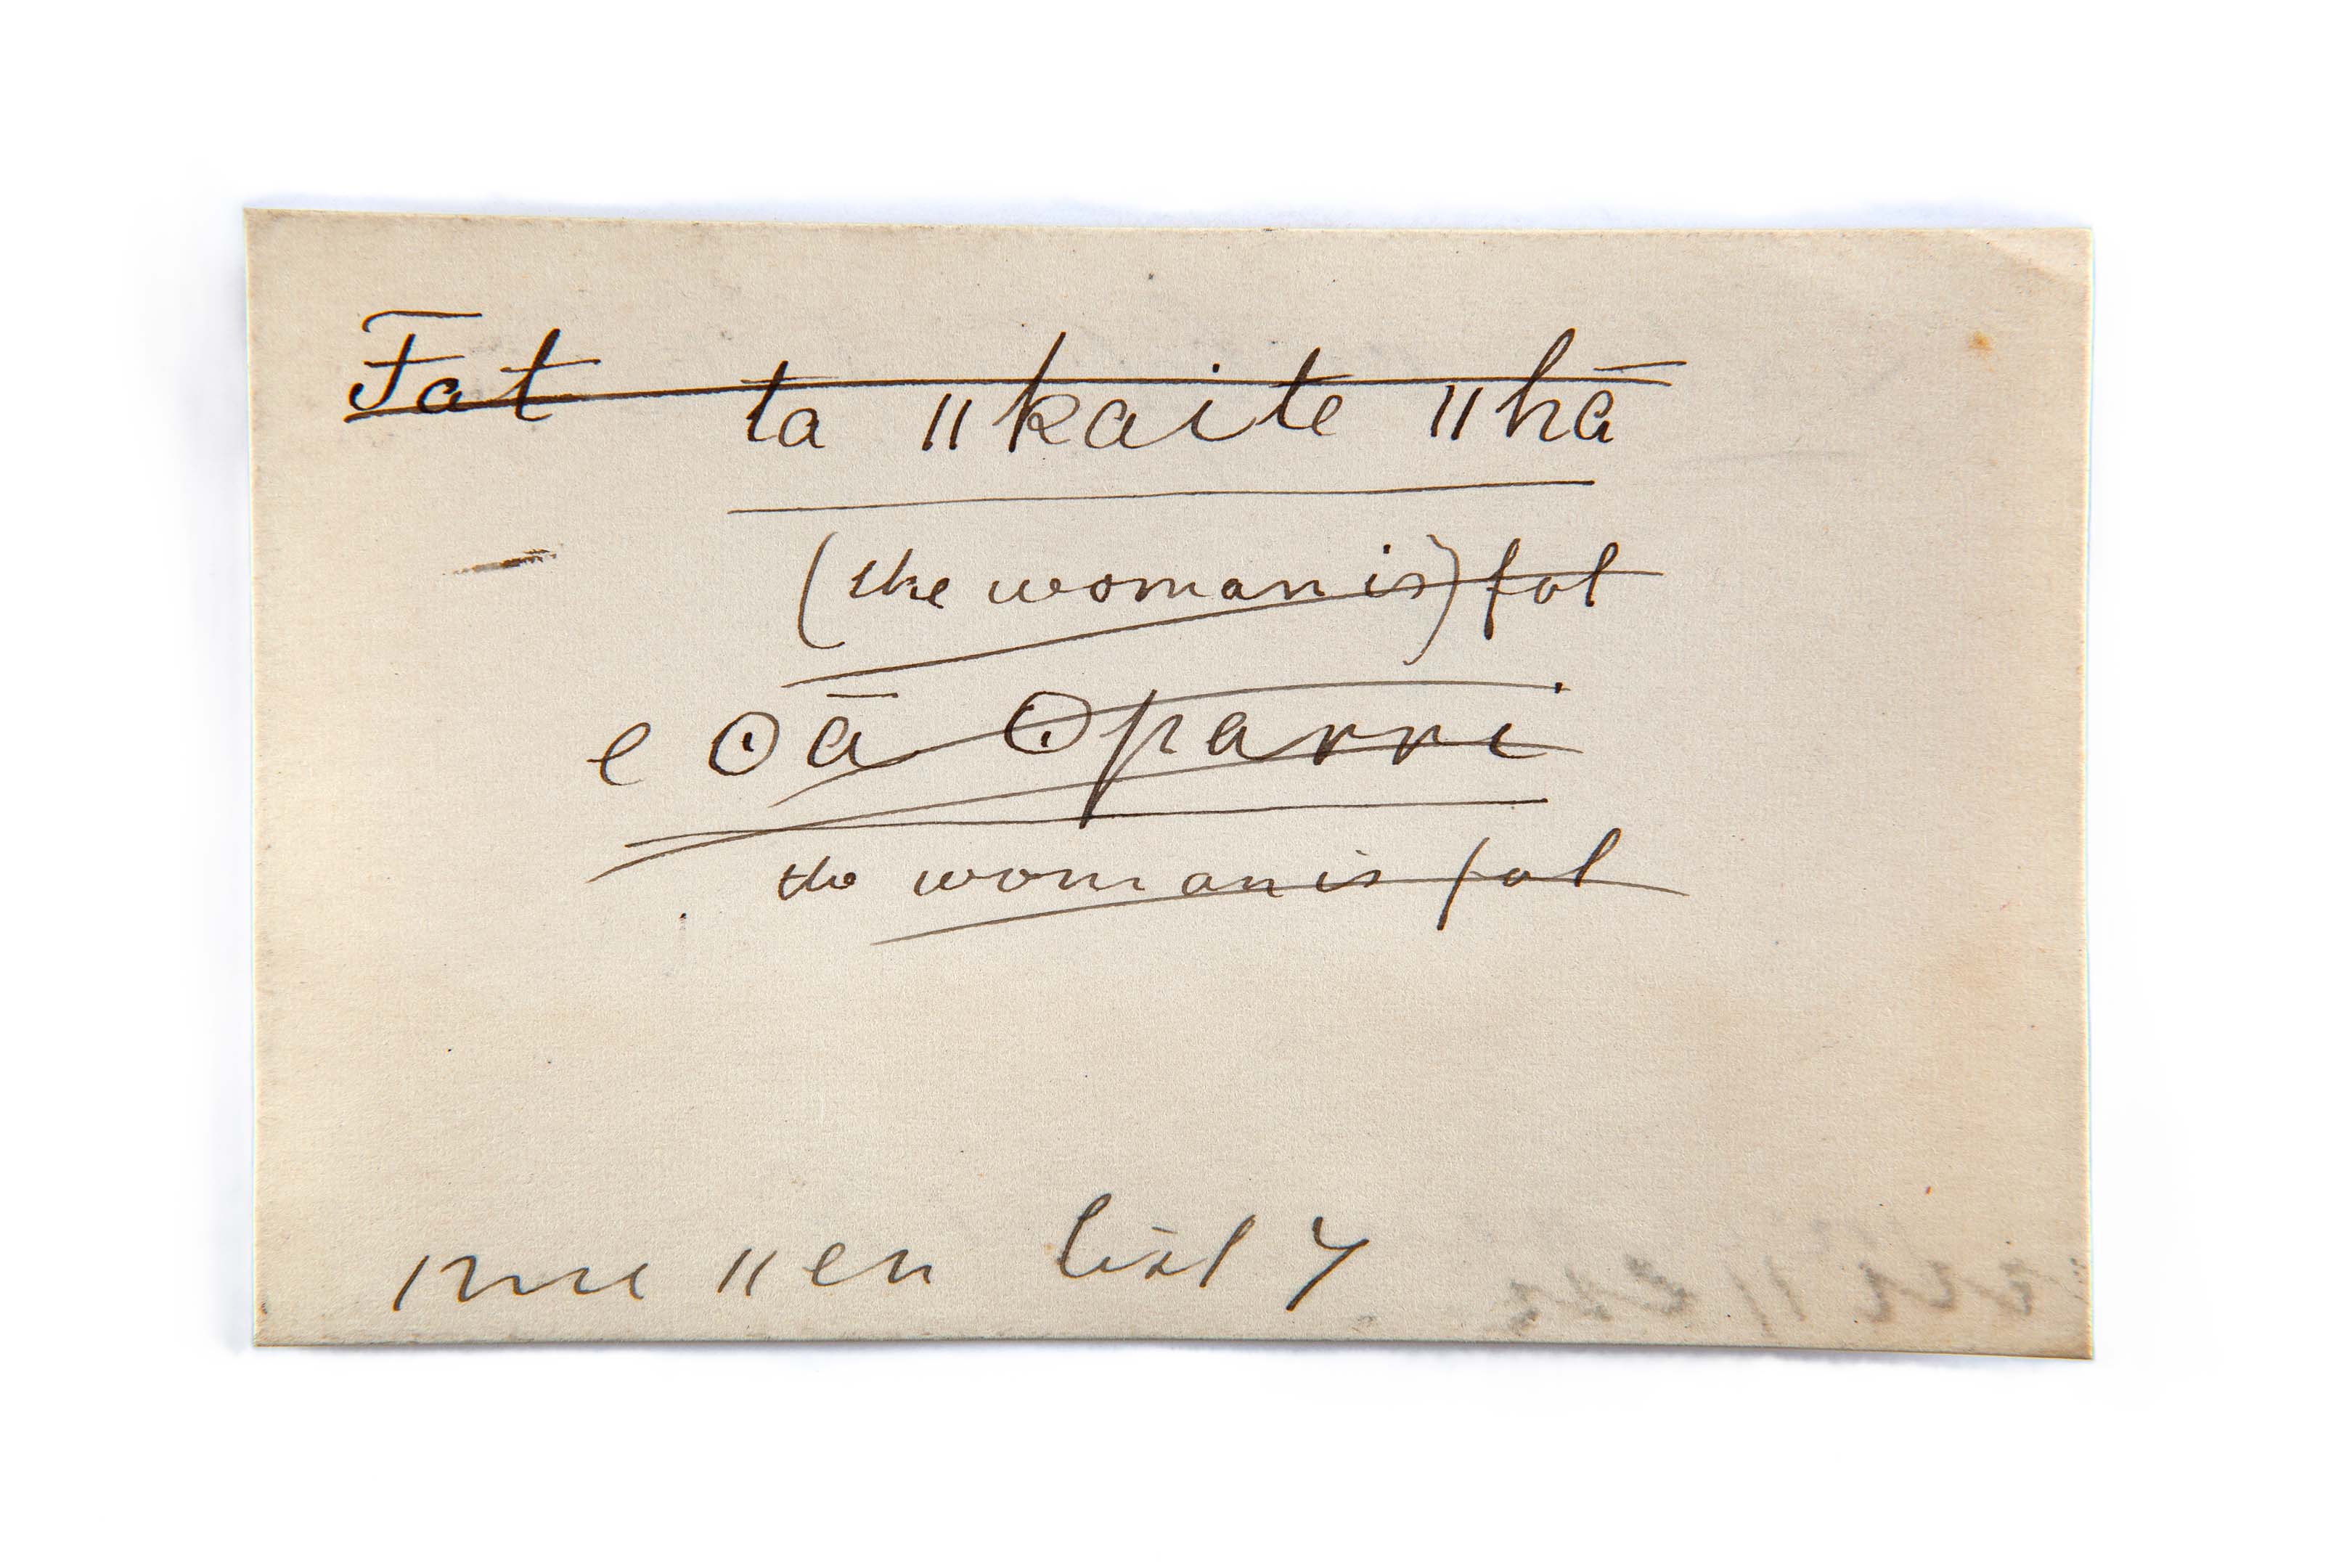 Fat ta ǁkaite ǁhā
(the woman is) fat
e ʘā ʘparri
the woman is fat
ǁen list 7